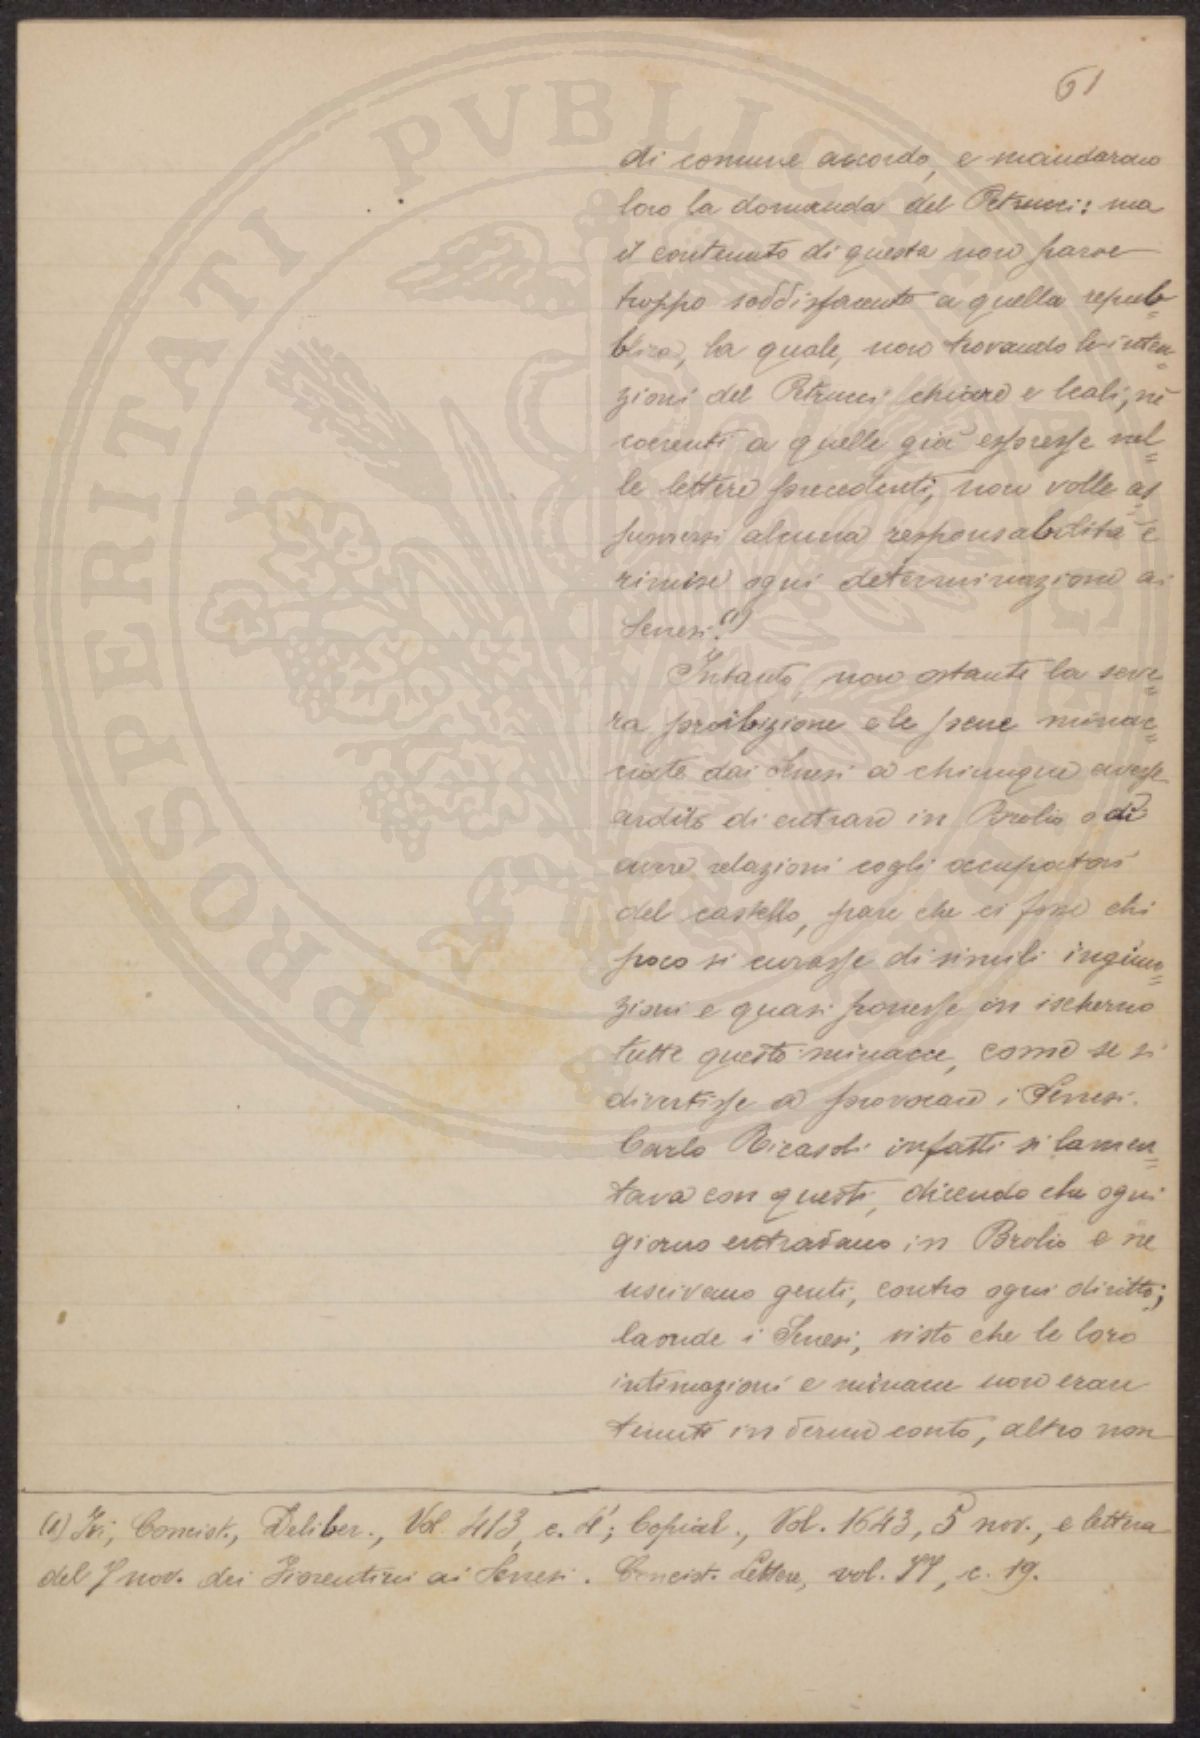 61
di comune accordo, e mandarono
loro la domanda del Petrucci: ma
il contenuto di questa non parve
troppo soddisfacente a quella repub=
blica, la quale, non trovando le inten=
zioni del Petrucci chiare e leali, nè
coerenti a quelle già espresse nel=
le lettere precedenti, non volle as
sumersi alcuna responsabilità e
rimise ogni determinazione ai
Senesi.(1)
Intanto, non ostante la seve=
ra proibizione e le pene minac=
ciate dai Senesi a chiunque avesse
ardito di entrare in Brolio o di
avere relazioni cogli occupatori
del castello, pare che ci fosse chi
poco si curasse di simili ingiun=
zioni e quasi ponesse in ischerno
tutte queste minacce, come se si
divertisse a provocare i Senesi.
Carlo Ricasoli infatti si lamen=
tava con questi, dicendo che ogni
giorno entravano in Brolio e ne
uscivano genti, contro ogni diritto;
laonde i Senesi, visto che le loro
intimazioni e minacce non eran
tenute in verun conto, altro non
(1) Ivi, Concist., Deliber., Vol. 413, c. 4'; Copial., Vol. 1643, 5 nov., e lettera
del 7 nov. dei Fiorentini ai Senesi. Concist. Lettere, vol. 77, c. 19.
PROSPERITATI PVBLICAE